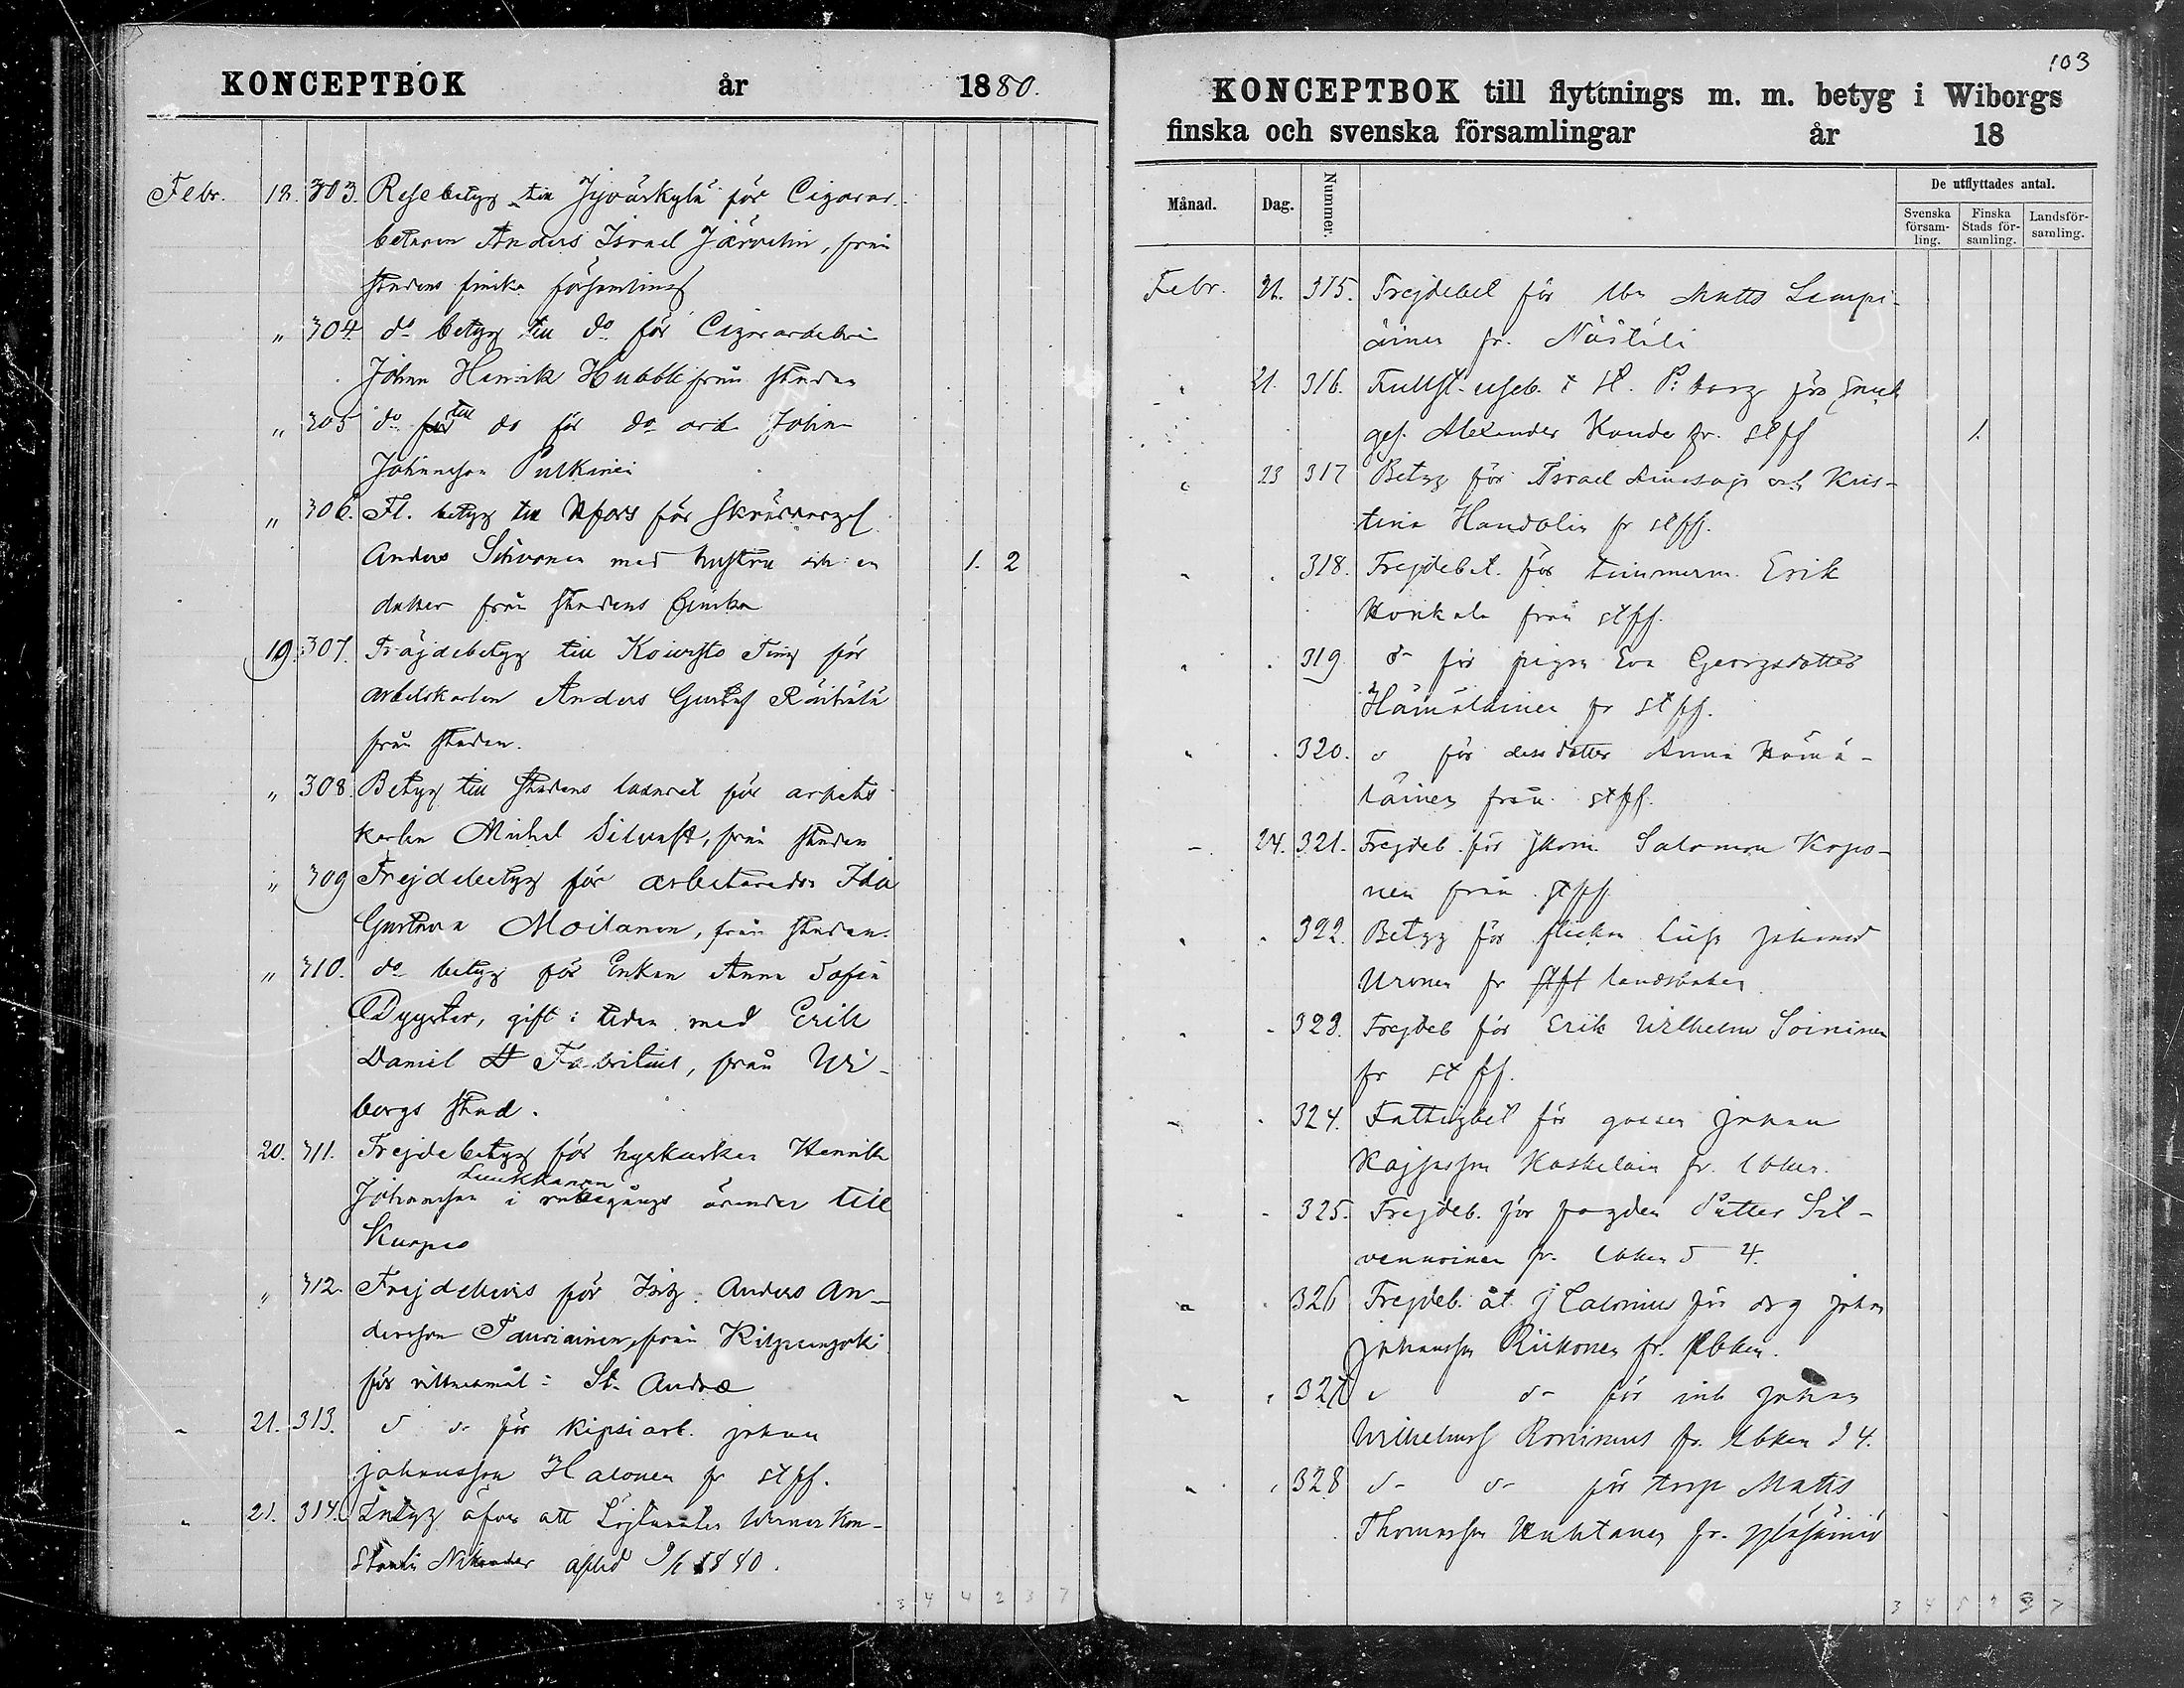 KONCEPTBOK år 1880.
Febr. 18. 303. Resebetyg till Jyväskylä för Cigarrar-
betaren Anders Israel Järvelin, från
stadens finska församling
„ 304 do betyg till do för Cigarrarbetaren
Johan Henrik Hubbli från staden
„ 305 do för till do för do arb. Johan
Johansson Pulkinen
„ 306. Fl. betyg till Hfors för Skräddarges.
Anders Sihvonen med hustru och en 1. 2
dotter från stadens finska
19. 307. Fräjdebetyg till Koivisto Ting för
arbetskarlen Anders Gustaf Räihälä
från staden.
„ 308. Betyg till stadens lasarett för arbets
karlen Mickel Silvast, från staden
„ 309 Frejdebetyg för arbetaredr. Ida
Gustava Moilanen, från staden.
„ 310. do betyg för Enkan Anna Sofia
Dyyster, gift i tiden med Erik
Daniel Fabritius, från Wi-
borgs stad.
20. 311. Frejdebetyg för hyrkusken Henrik
Johansson Luukkanen i rättegångs ärender till
Kuopio
„ 312. Frejdebevis för Isitz. Anders An-
dersson Tauriainen, från Kilpeenjoki
för vittnesmål i St. Andræ
" 21. 313. d do för kipsiarb. Johan
Johansson Halonen fr stff.
" 21. 314. Intyg öfver att Löjtnanten Werner Kon-
stantin Nikander afled 9/1 1880.
3 4 4 2 3 7
103
KONCEPTBOK till flyttnings m. m. betyg i Wiborgs
finska och svenska församlingar år 18
Månad. Dag. Nummer. De utflyttades antal.
Svenska försam-ling. Finska Stads för-samling. Landsför-samling.
Febr. 21. 315. Frejdebet för lbn Matts Lempi-
äinen fr. Näätälä
" 21. 316. Fullst. utfl.b. t St. P:borg för smeds
ges. Alexander Konde fr. stff 1.
" 23 317 Betyg för Israel och Kris-
tina Handolin fr stff.
" " 318. Frejdebet. för timmerm. Erik
Konkala från stff.
" " 319 do för pigan Eva Georgsdotter
Hämäläinen fr stff.
" " 320. d för dess dotter Anna Hämä-
läinen från stff.
" 24. 321. Frejdeb. för Salomon Kopo-
nen från stff.
" " 322. Betyg för flickan Luise Johansd
Uronen fr stff landsboken
" " 323. Frejdeb för Erik Wilhelm Soininen
fr st ff.
" " 324. Fattigbet för gossen Johan
Kajjusson Koskelain fr. lbken.
" " 325. Frejdeb. för fogden Petter Sil-
vennoinen fr. lbken d 4.
" " 326 Frejdeb. åt J Calonius för drg Johan
Johansson Riikonen fr. lbken.
" " 327 d do för inh Johan
Wilhelmss Roininen fr. lbken d 4.
" " 328 do do för torp Matts
Thomasson Huhtanen fr. Yläsäiniö
3 4 5 7